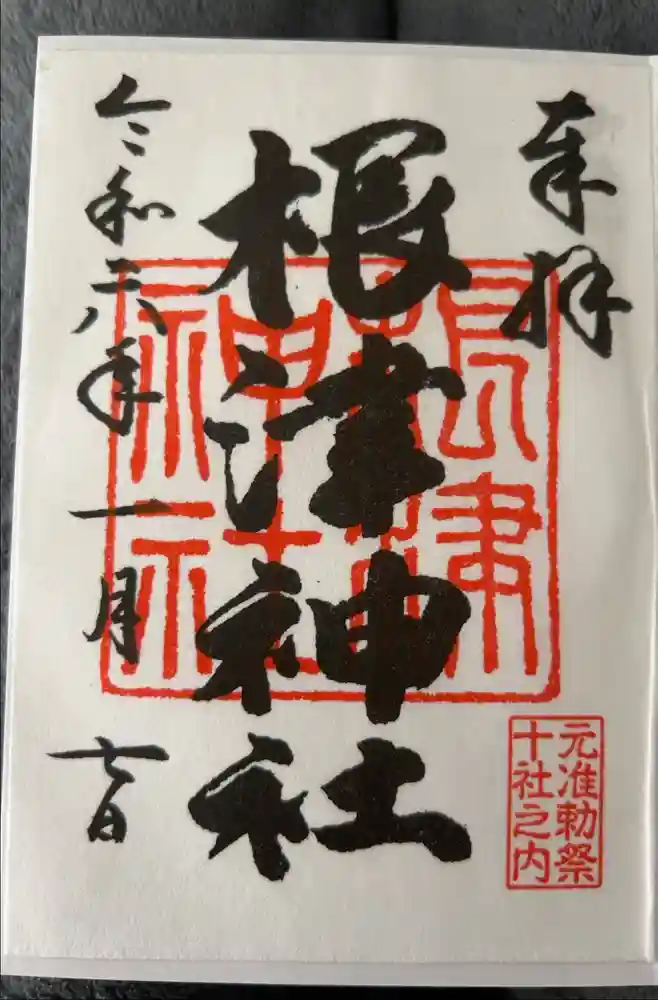 奉拝
根津神社
令和六年一月七日
根津神社
元准勅祭
十社之内